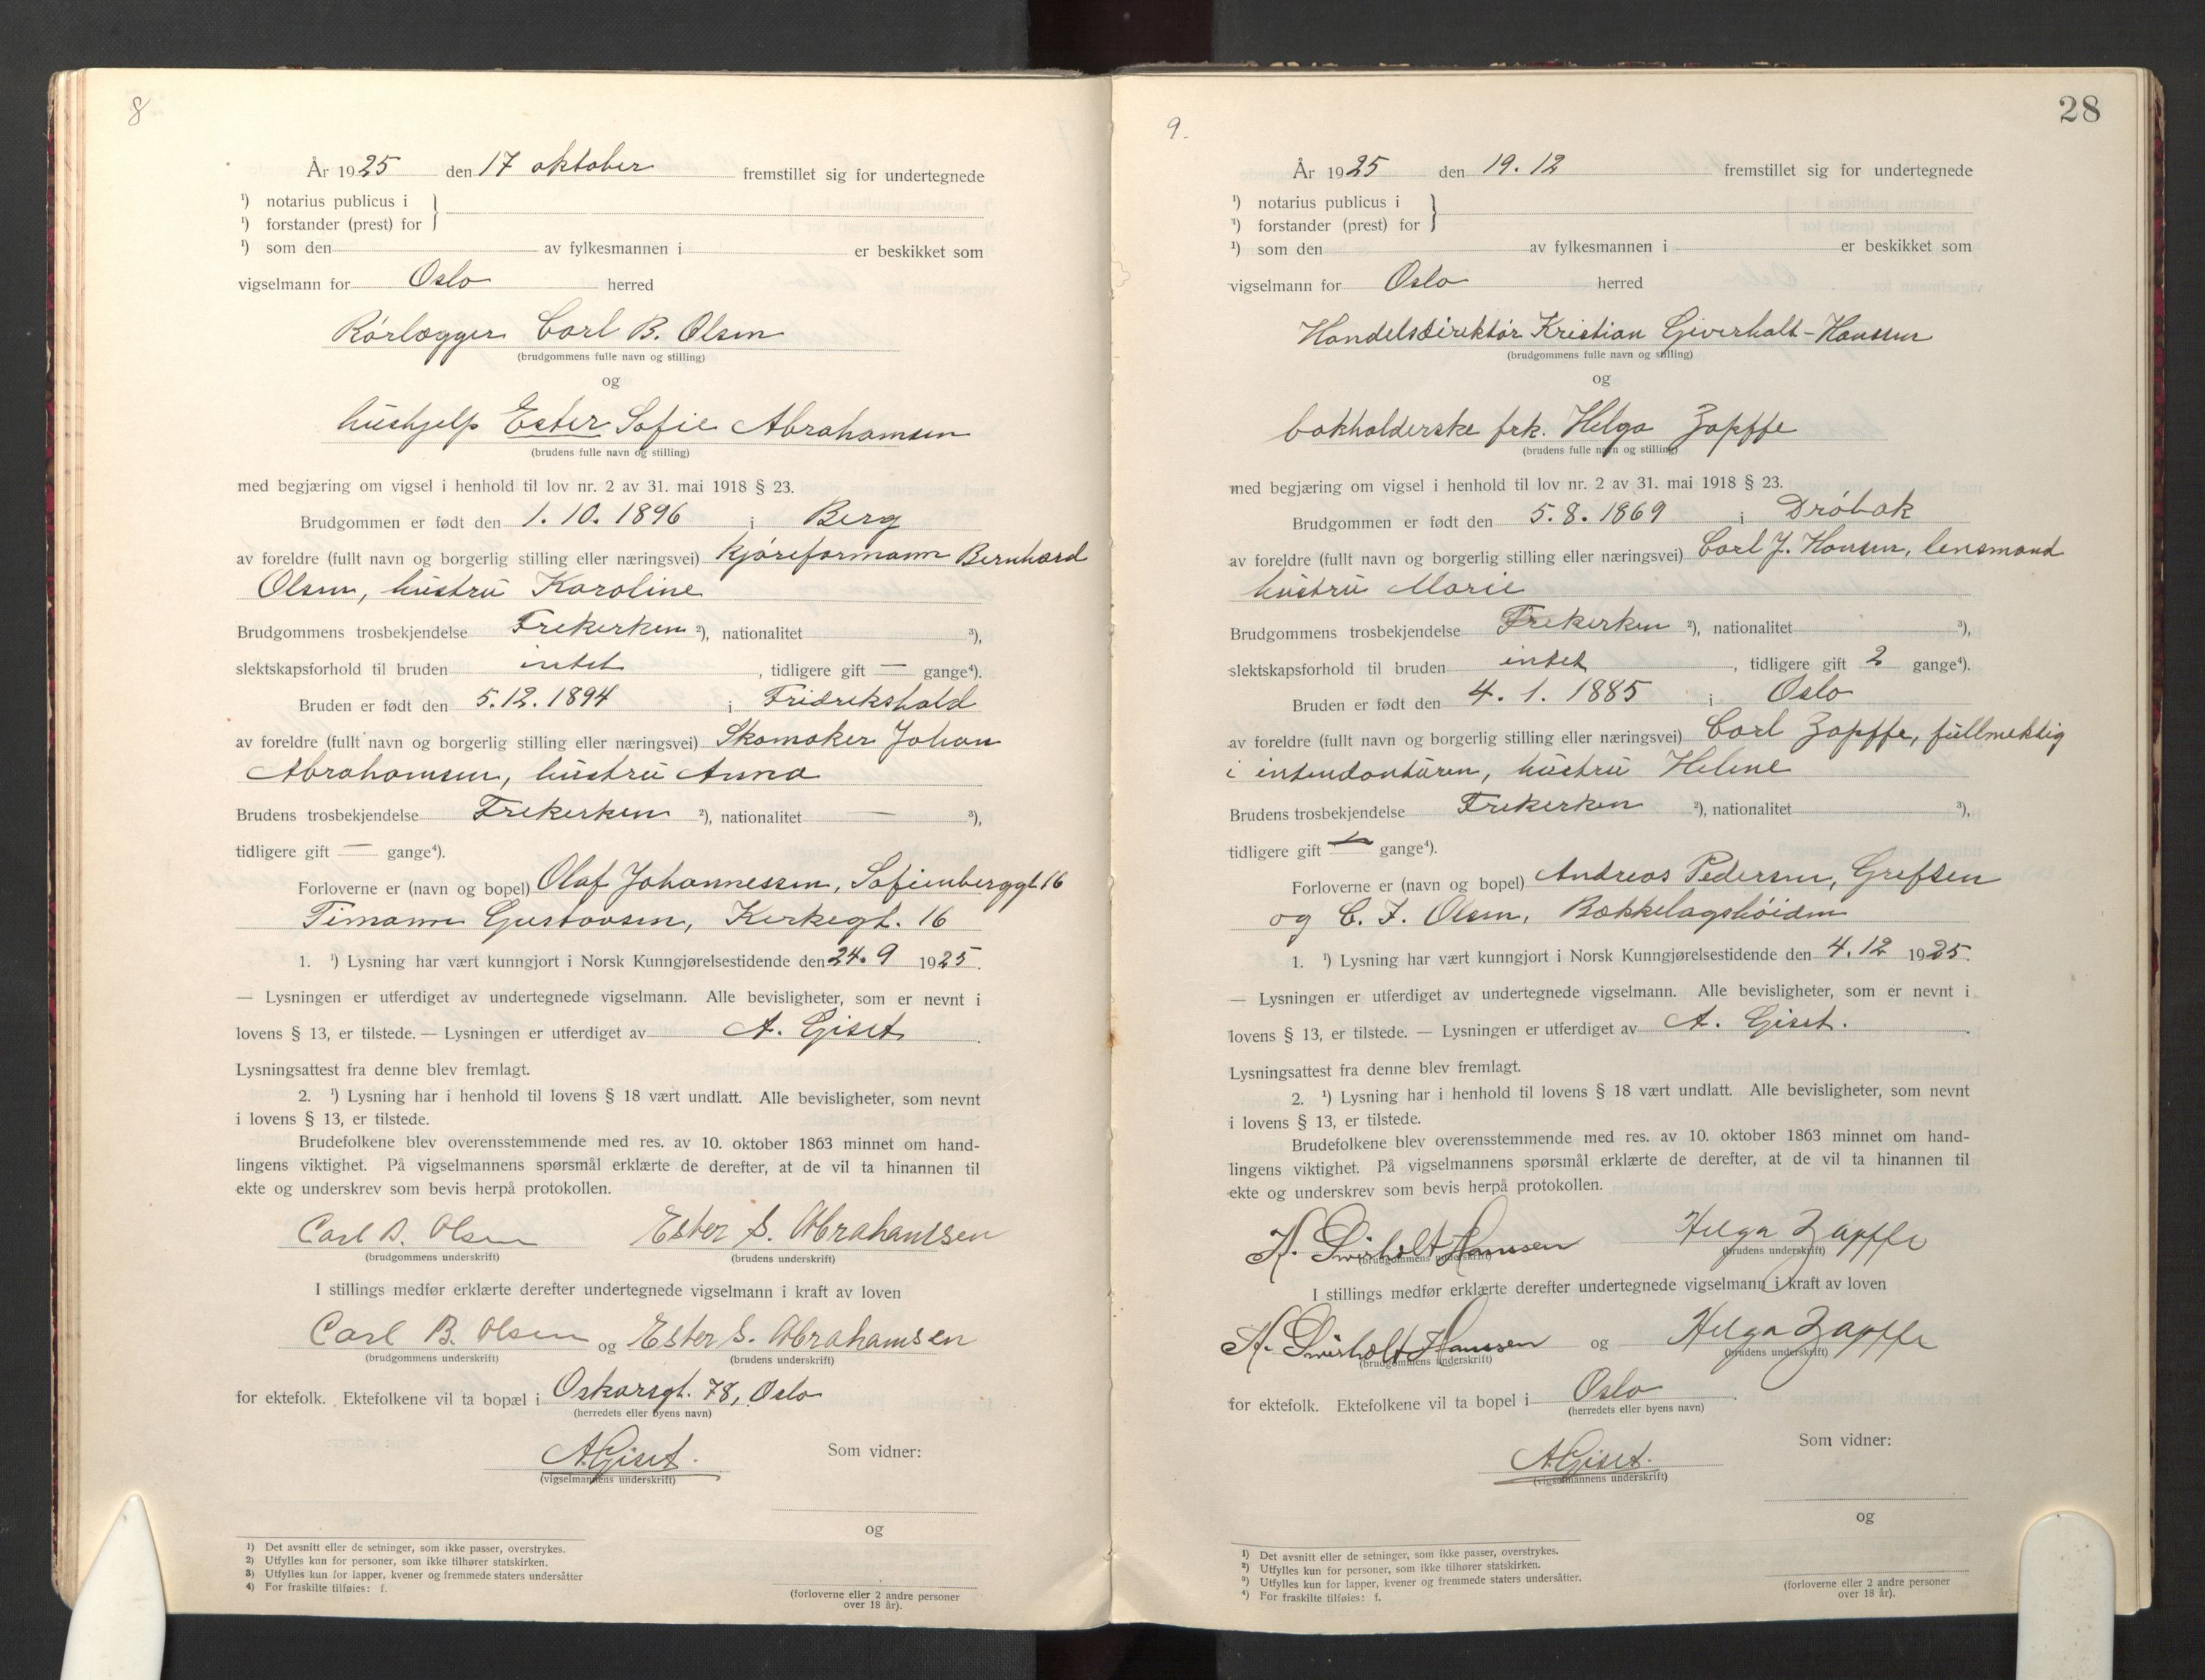 8
År 1925 den 17 oktober fremstillet sig for undertegnede
¹) notarius publicus i
¹) forstander (prest) for }
¹) som den av fylkesmannen i er beskikket som
vigselmann for Oslo herred
Rörlægger Carl B. Olsen
(brudgommens fulle navn og stilling)
og
hushjelp Ester Sofie Abrahamsen
(brudens fulle navn og stilling)
med begjæring om vigsel i henhold til lov nr. 2 av 31. mai 1918 § 23.
Brudgommen er født den 1. 10. 1896 i Berg
av foreldre (fullt navn og borgerlig stilling eller næringsvei) kjøreformann Bernhard
Olsen, hustru Karoline
Brudgommens trosbekjendelse Frekerken ²), nationalitet ³),
slektskapsforhold til bruden intet, tidligere gift — gange⁴).
Bruden er født den 5. 12. 1894 i Fridrekshald
av foreldre (fullt navn og borgerlig stilling eller næringsvei) Skomaker Johan
Abrahamsen, hustru Anna
Brudens trosbekjendelse Frekerken ²), nationalitet — ³),
tidligere gift — gange⁴).
Forloverne er (navn og bopel) Olaf Johannessen, Sofienberggt. 16
Timann Gustavsen, Kerkegt. 16
1. ¹) Lysning har vært kunngjort i Norsk Kunngjørelsestidende den 24. 9 1925.
— Lysningen er utferdiget av undertegnede vigselmann. Alle bevisligheter, som er nevnt i
lovens § 13, er tilstede. — Lysningen er utferdiget av A. Giset.
Lysningsattest fra denne blev fremlagt.
2. ¹) Lysning har i henhold til lovens § 18 vært undlatt. Alle bevisligheter, som nevnt
i lovens § 13, er tilstede.
Brudefolkene blev overensstemmende med res. av 10. oktober 1863 minnet om hand-
lingens viktighet. På vigselmannens spørsmål erklærte de derefter, at de vil ta hinannen til
ekte og underskrev som bevis herpå protokollen.
Carl B. Olsen Ester S. Abrahamsen
(brudgommens underskrift) (brudens underskrift)
I stillings medfør erklærte derefter undertegnede vigselmann i kraft av loven
Carl B. Olsen og Ester S. Abrahamsen
(brudgommens underskrift) (brudens underskrift)
for ektefolk. Ektefolkene vil ta bopæl i Oskarsgt. 78, Oslo
(herredets eller byens navn)
A. Giset.
(vigselmannens underskrift)
Som vidner:
og
(forloverne eller 2 andre personer
over 18 år).
1) Det avsnitt eller de setninger, som ikke passer, overstrykes.
2) Utfylles kun for personer, som ikke tilhører statskirken.
3) Utfylles kun for lapper, kvener og fremmede staters undersåtter
4) For fraskilte tilføies: f.
28
9.
År 1925 den 19. 12 fremstillet sig for undertegnede
¹) notarius publicus i
¹) forstander (prest) for }
¹) som den av fylkesmannen i er beskikket som
vigselmann for Oslo herred
Handelsdirektør Kristian Giverholt-Hanssen
(brudgommens fulle navn og stilling)
og
bokholderske frk. Helga Zapffe
(brudens fulle navn og stilling)
med begjæring om vigsel i henhold til lov nr. 2 av 31. mai 1918 § 23.
Brudgommen er født den 5. 8. 1869 i Dröbak
av foreldre (fullt navn og borgerlig stilling eller næringsvei) Carl J. Hansen, lensmand
hustru Marie
Brudgommens trosbekjendelse Frekerken ²), nationalitet ³),
slektskapsforhold til bruden intet, tidligere gift 2 gange⁴).
Bruden er født den 4. 1. 1885 i Oslo
av foreldre (fullt navn og borgerlig stilling eller næringsvei) Carl Zapffe, fullmektig
i intendanturen, hustru Helene
Brudens trosbekjendelse Frekerken ²), nationalitet ³),
tidligere gift — gange⁴).
Forloverne er (navn og bopel) Andreas Pedersen, Grefsen
og C. F. Olsen, Bækkelagshöiden
1. ¹) Lysning har vært kunngjort i Norsk Kunngjørelsestidende den 4. 12 1925.
— Lysningen er utferdiget av undertegnede vigselmann. Alle bevisligheter, som er nevnt i
lovens § 13, er tilstede. — Lysningen er utferdiget av A. Giset.
Lysningsattest fra denne blev fremlagt.
2. ¹) Lysning har i henhold til lovens § 18 vært undlatt. Alle bevisligheter, som nevnt
i lovens § 13, er tilstede.
Brudefolkene blev overensstemmende med res. av 10. oktober 1863 minnet om hand-
lingens viktighet. På vigselmannens spørsmål erklærte de derefter, at de vil ta hinannen til
ekte og underskrev som bevis herpå protokollen.
K. Giverholt Hanssen Helga Zapffe
(brudgommens underskrift) (brudens underskrift)
I stillings medfør erklærte derefter undertegnede vigselmann i kraft av loven
K. Giverholt Hanssen og Helga Zapffe
(brudgommens underskrift) (brudens underskrift)
for ektefolk. Ektefolkene vil ta bopel i Oslo.
(herredets eller byens navn)
A. Giset.
(vigselmannens underskrift)
Som vidner:
og
(forloverne eller 2 andre personer
over 18 år).
1) Det avsnitt eller de setninger, som ikke passer, overstrykes.
2) Utfylles kun for personer, som ikke tilhører statskirken.
3) Utfylles kun for lapper, kvener og fremmede staters undersåtter.
4) For fraskilte tilføies: f.